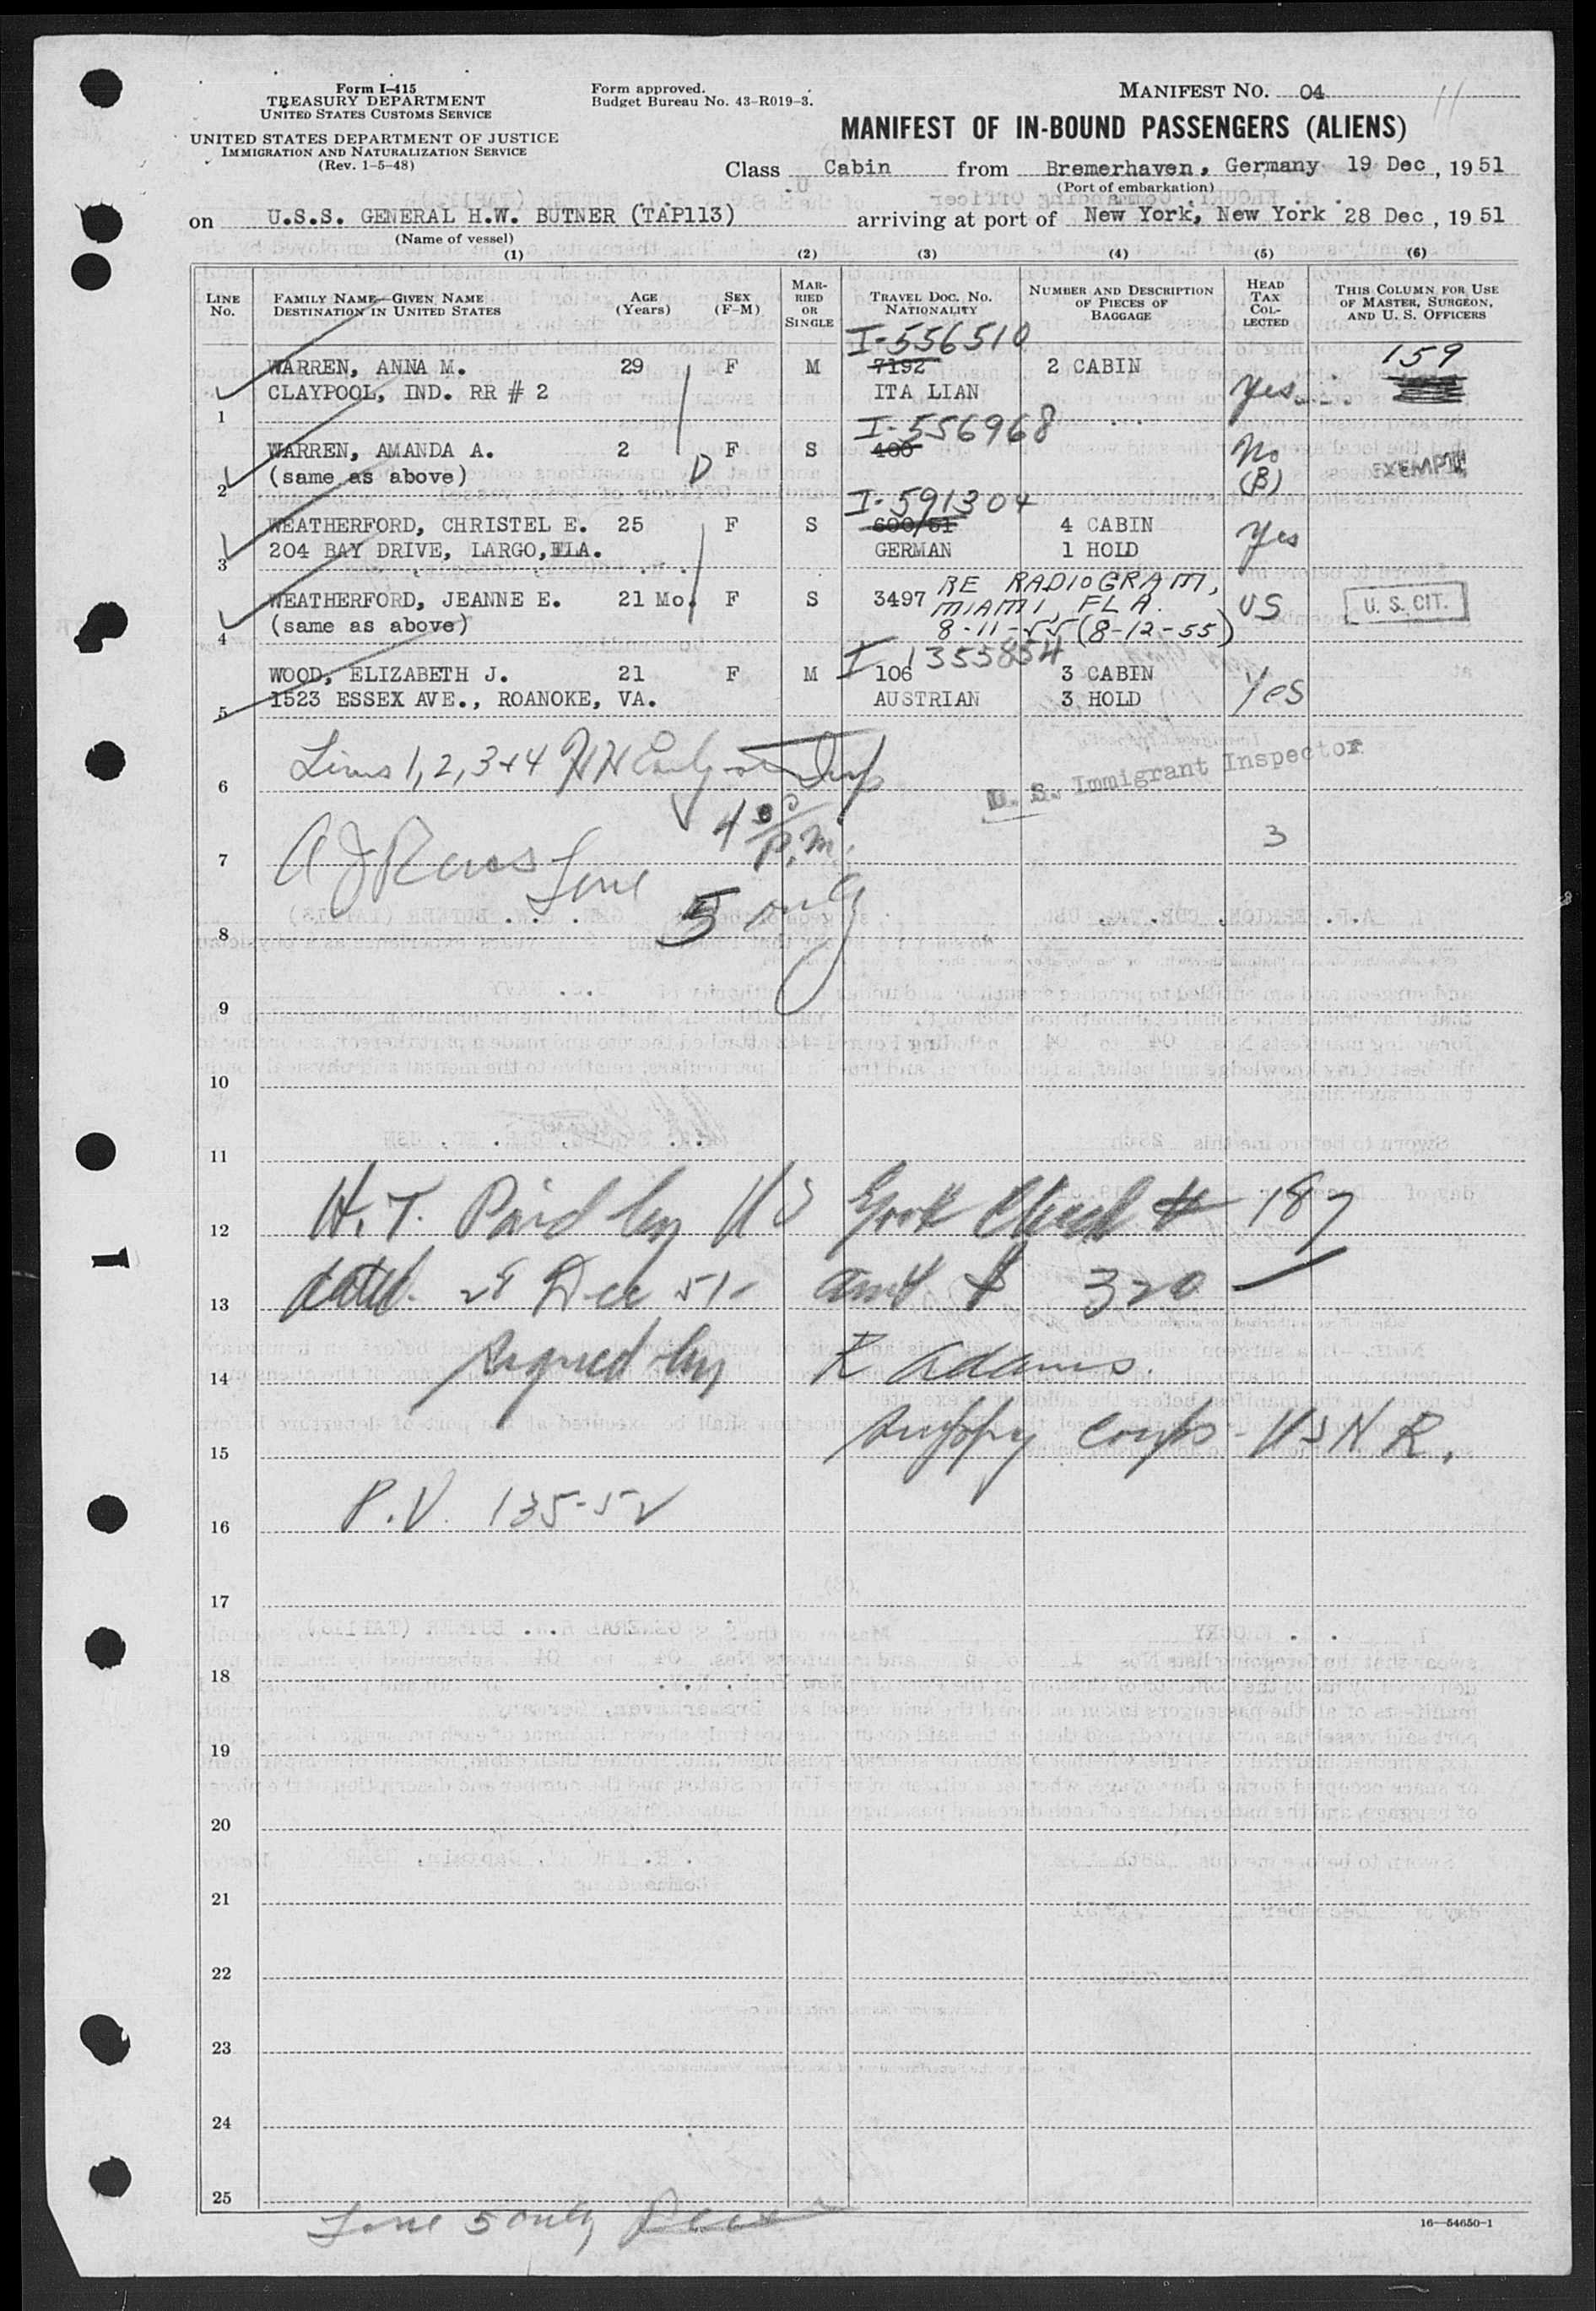 Form I-415
TREASURY DEPARTMENT
UNITED STATES CUSTOMS SERVICE
UNITED STATES DEPARTMENT OF JUSTICE
IMMIGRATION AND NATURALIZATION SERVICE
(Rev. 1-5-48)
Form approved.
Budget Bureau No. 43-R019-3.
MANIFEST NO. 04
11
MANIFEST OF IN-BOUND PASSENGERS (ALIENS)
Class Cabin from Bremerhaven, Germany 19 Dec, 1951
(Port of embarkation)
on U.S.S. GENERAL H.W. BUTNER (TAP113) arriving at port of New York, New York 28 Dec, 1951
(Name of vessel)
(1) (2) (3) (4) (5) (6)
LINE No.
FAMILY NAME—GIVEN NAME
DESTINATION IN UNITED STATES
AGE (Years)
SEX (F-M)
MARRIED OR SINGLE
TRAVEL DOC. NO. NATIONALITY
NUMBER AND DESCRIPTION OF PIECES OF BAGGAGE
HEAD TAX COLLECTED
THIS COLUMN FOR USE OF MASTER, SURGEON, AND U. S. OFFICERS
I-556510
WARREN, ANNA M. 29 F M 7192 2 CABIN 159
CLAYPOOL, IND. RR # 2 ITALIAN Yes
1
I-556968
WARREN, AMANDA A. 2 F S 400 No
(same as above) (B) EXEMPT
2 D
I-591304
WEATHERFORD, CHRISTEL E. 25 F S 600/51 4 CABIN Yes
204 BAY DRIVE, LARGO, FLA. GERMAN 1 HOLD
3
RE RADIOGRAM,
WEATHERFORD, JEANNE E. 21 Mo. F S 3497 MIAMI, FLA. US U. S. CIT.
(same as above) 8-11-55 (8-12-55)
4
I 1355854
WOOD, ELIZABETH J. 21 F M 106 3 CABIN Yes
1523 ESSEX AVE., ROANOKE, VA. AUSTRIAN 3 HOLD
5
Lines 1, 2, 3 + 4
U. S. Immigrant Inspector
6
4 30 P.M.
3
7
Line
5 only
8
9
10
11
H.T. Paid by US Govt Check # 187
12
dated 28 Dec 51 amt $ 320
13
Signed by R Adams.
14
Supply Corps - USNR.
15
P.V. 135-52
16
17
18
19
20
21
22
23
24
25
Line 5 only
16—54650-1